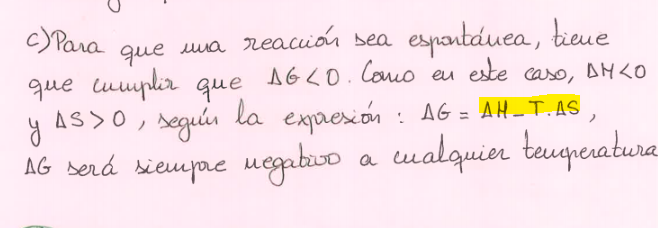 c) Para que una reacción sea espontánea, tiene
que cumplir que ΔG < 0. Como en este caso, ΔH < 0
y ΔS > 0, según la expresión: ΔG = ΔH - T.ΔS,
ΔG será siempre negativo a cualquier temperatura